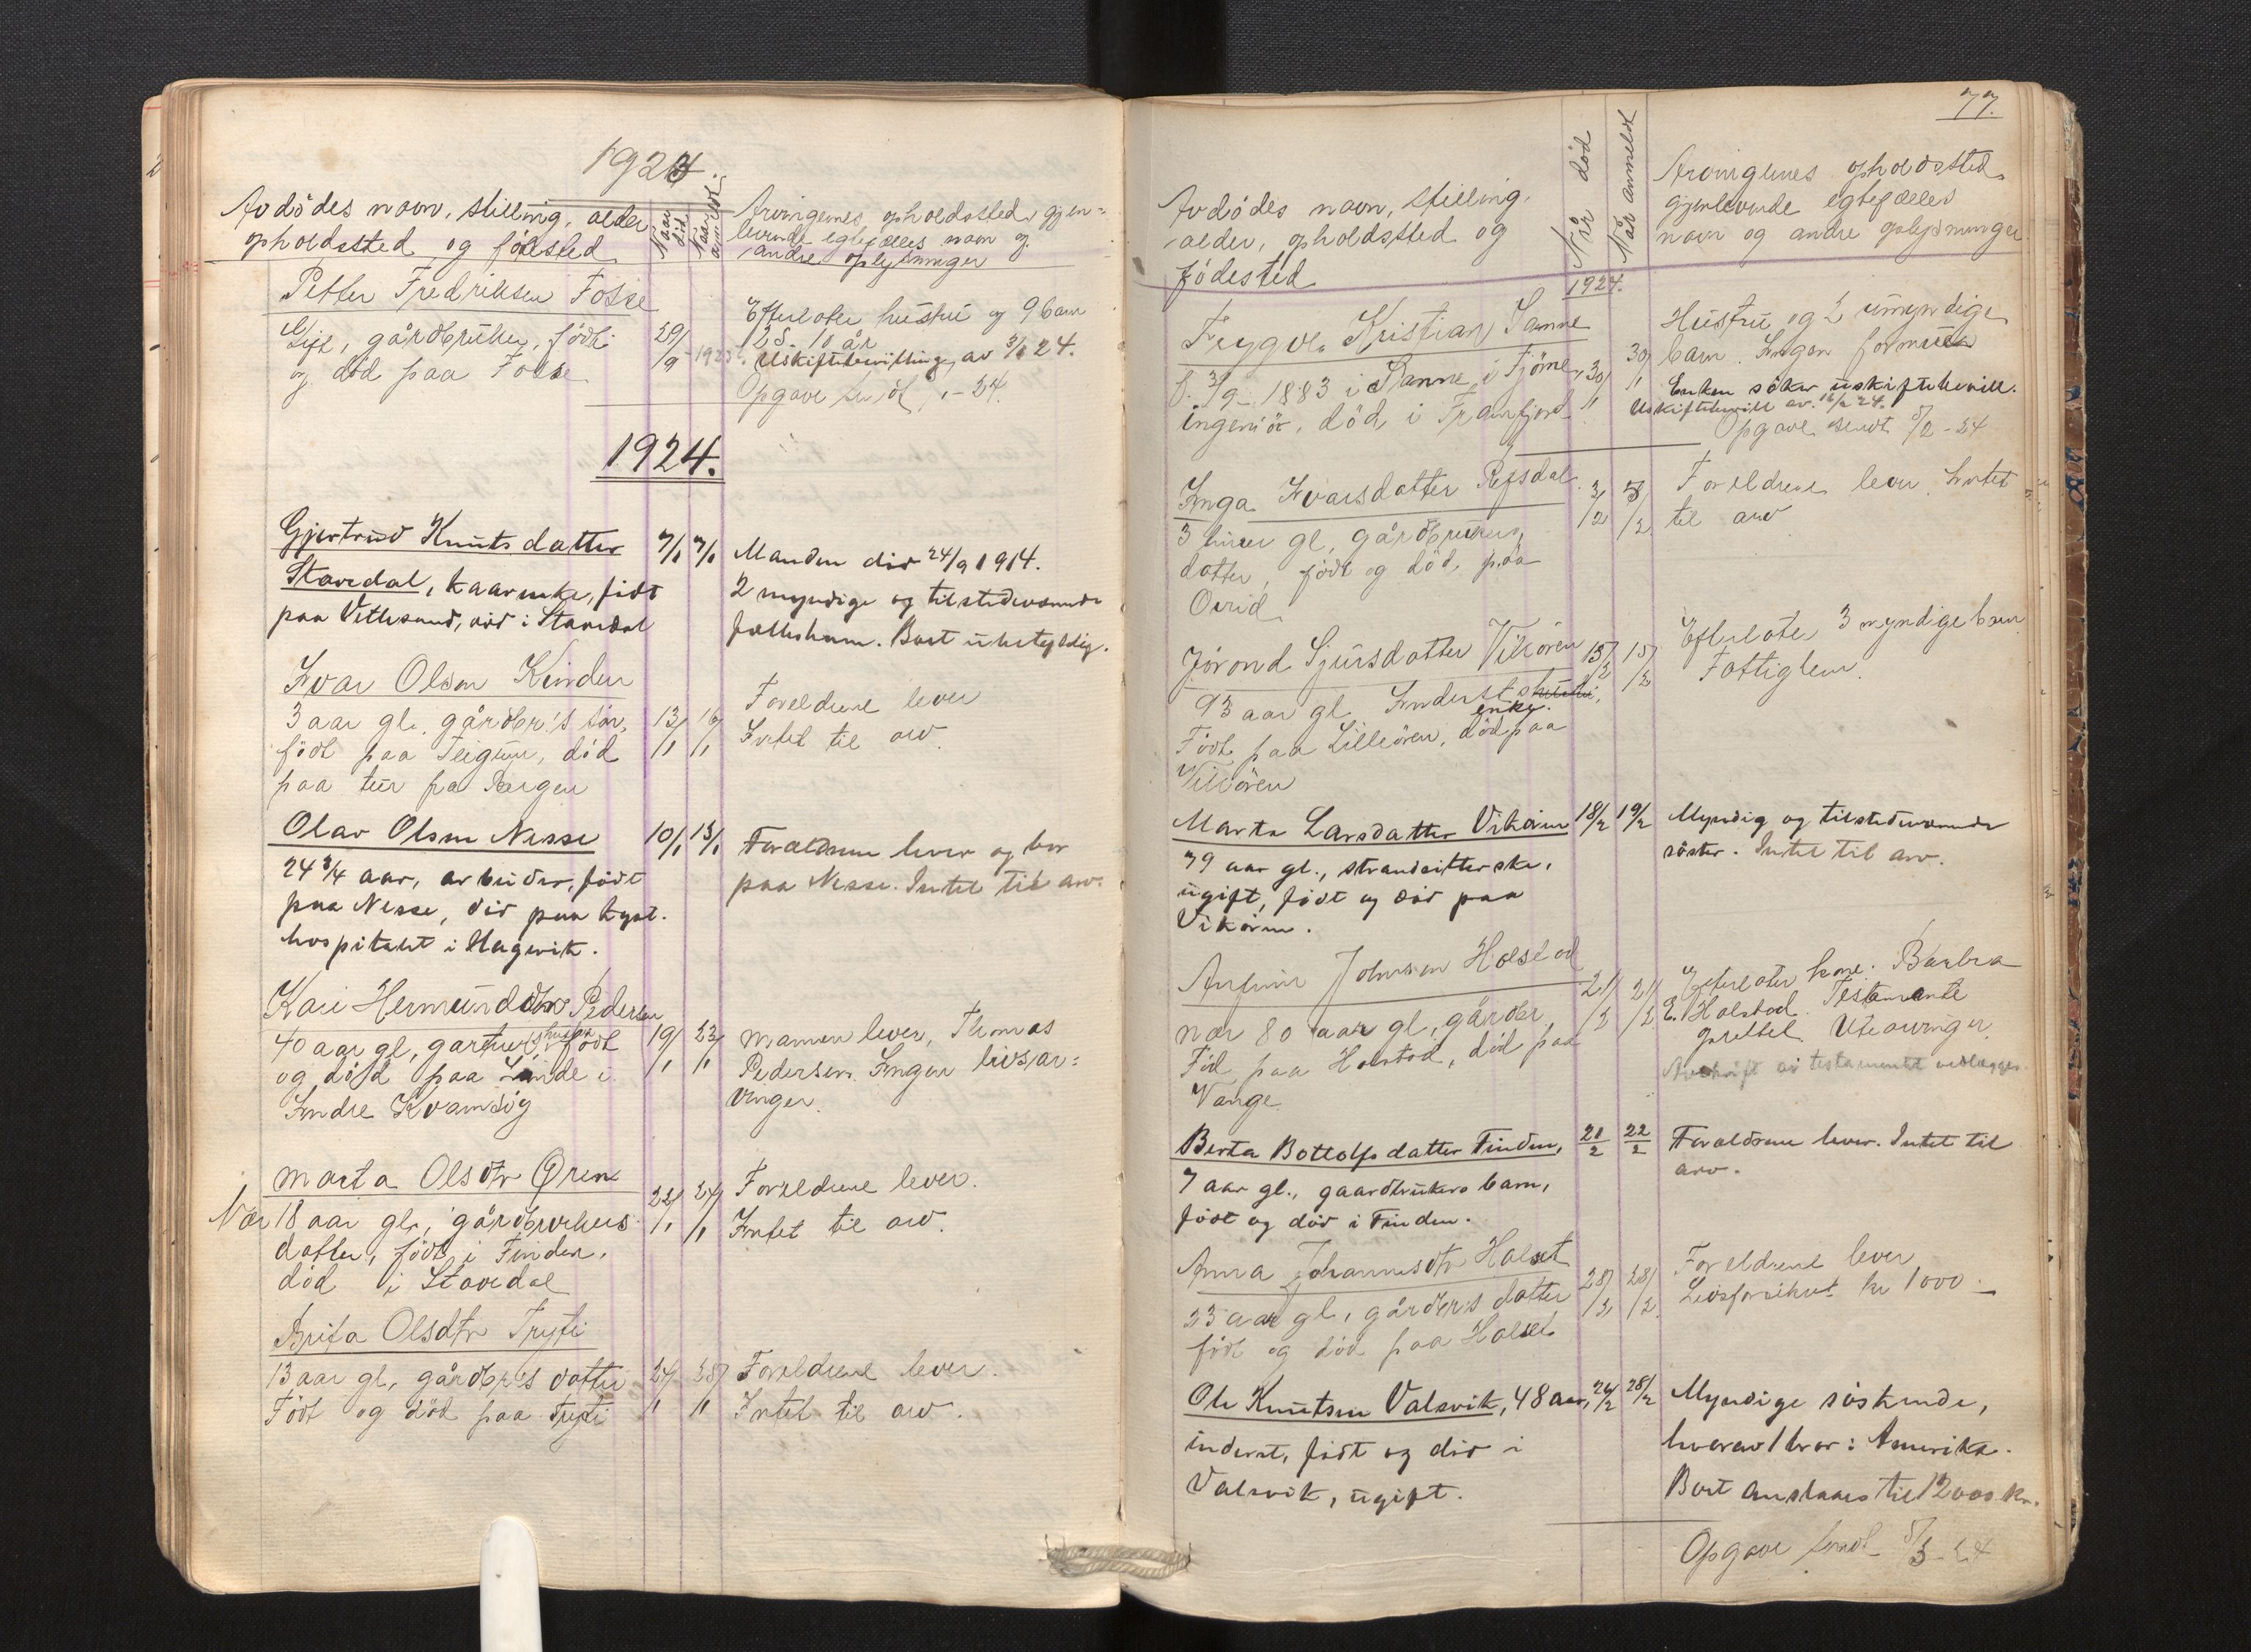 1924
Avdödes navn, stilling, alder
opholdssted og födested
Naar död
Naar anmeldt
Arvingernes opholdssted, gjen=
levende egtefælles navn og
andre oplysninger
Petter Fredriksen Fosse
Gift, gårdbruker, född
og död paa Fosse
29/9 1923
Efterlater hustru og 9 barn
Uskiftebevilling av 3/1 24.
Opgave
1924.
Gjertrud Knutsdatter
Stavedal, kaarenke, födt
paa Vetlesand, död i Stavedal
7/1 7/1
Manden död 24/9 1914.
2 myndige og tilstedeværende
fællesbarn. Boet ubetydelig.
Ivar Olsen Kinden
3 aar gl. gårdbr's sön,
födt paa Teigum, död
paa tur fra Bergen
13/1 16/1
Foreldrene lever
Intet til arv.
Olav Olsen Nesse
24 3/4 aar, arbeider, födt
paa Nesse, död paa kyst.
hospitalet i Hagevik.
10/1 13/1
Forældrene lever og bor
paa Nesse. Intet til arv.
Kari Hermunddtr Pedersen
40 aar gl, gartner's hustru födt
og död paa Linde i
Indre Kvamsöy
19/1 23/1
Mannen lever, Thomas
Pedersen. Ingen livsar=
vinger.
Marta Olsdtr Øren
Nær 18 aar gl, gårdbrukers
datter, födt i Finden,
död i Stavedal
22/1 24/1
Foreldrene lever.
Intet til arv.
Brita Olsdtr Tryti
13 aar gl, gårdbr's datter
Födt og död paa Tryti
24/1 28/1
Foreldrene lever.
Intet til arv.
77.
Avdödes navn, stilling,
alder, opholdssted og
födested
Når död
Når anmeldt
Arvingenes opholdssted
gjenlevende egtefælles
navn og andre oplysninger
1924.
Trygve Kristian Sanne
f. 3/9 1883 i Sanne i Tjöme,
ingeniör, död i Framfjord
30/1 30/1
Hustru og 2 umyndige
barn. Ingen formue
Enken söker uskiftebevill.
Uskiftebevill av. 16/2 24.
Opgave sendt 5/2 - 24
Inga Ivarsdatter Refsdal
3 timer gl, gårdbrukers
datter, födt og död paa
Ovrid
3/2 5/2
Foreldrene lever. Intet
til arv
Jörond Sjursdatter Vikören
93 aar gl Inderst's hustru,
enke.
Födt paa Lilleören, död paa
Vikören
15/2 15/2
Efterlater 3 myndige barn
Fattiglem.
Marta Larsdatter Vikören
79 aar gl., strandsitterske,
ugift, födt og död paa
Vikören.
18/2 19/2
Myndig og tilstedeværende
söster. Intet til arv.
Johnsen Holstad
nær 80 aar gl, gårdbr
Föd paa Holstad, död paa
Vange
21/2 21/2
Efterlater kone: Barbra
E. Holstad. Testamente
oprettet. Utearvinger
Avskrift av testamentet vedlægges
Berta Bottolfsdatter Finden,
7 aar gl., gaardbrukers barn,
födt og död i Finden.
21/2 22/2
Forældrene lever. Intet til
arv.
Anna Johannesdtr Halset
23 aar gl, gårdbr's datter
födt og död paa Halset
28/2 28/2
Foreldrene lever
Livsforsikret kr 1000 -
Ole Knutsen Valsvik, 48 aar,
inderst, födt og död i
Valsvik, ugift.
26/2 28/2
Myndige söskende,
hvorav 1 bror i Amerika.
Boet anslaaes til 12000 kr.
Opgave sendt 5/3 - 24